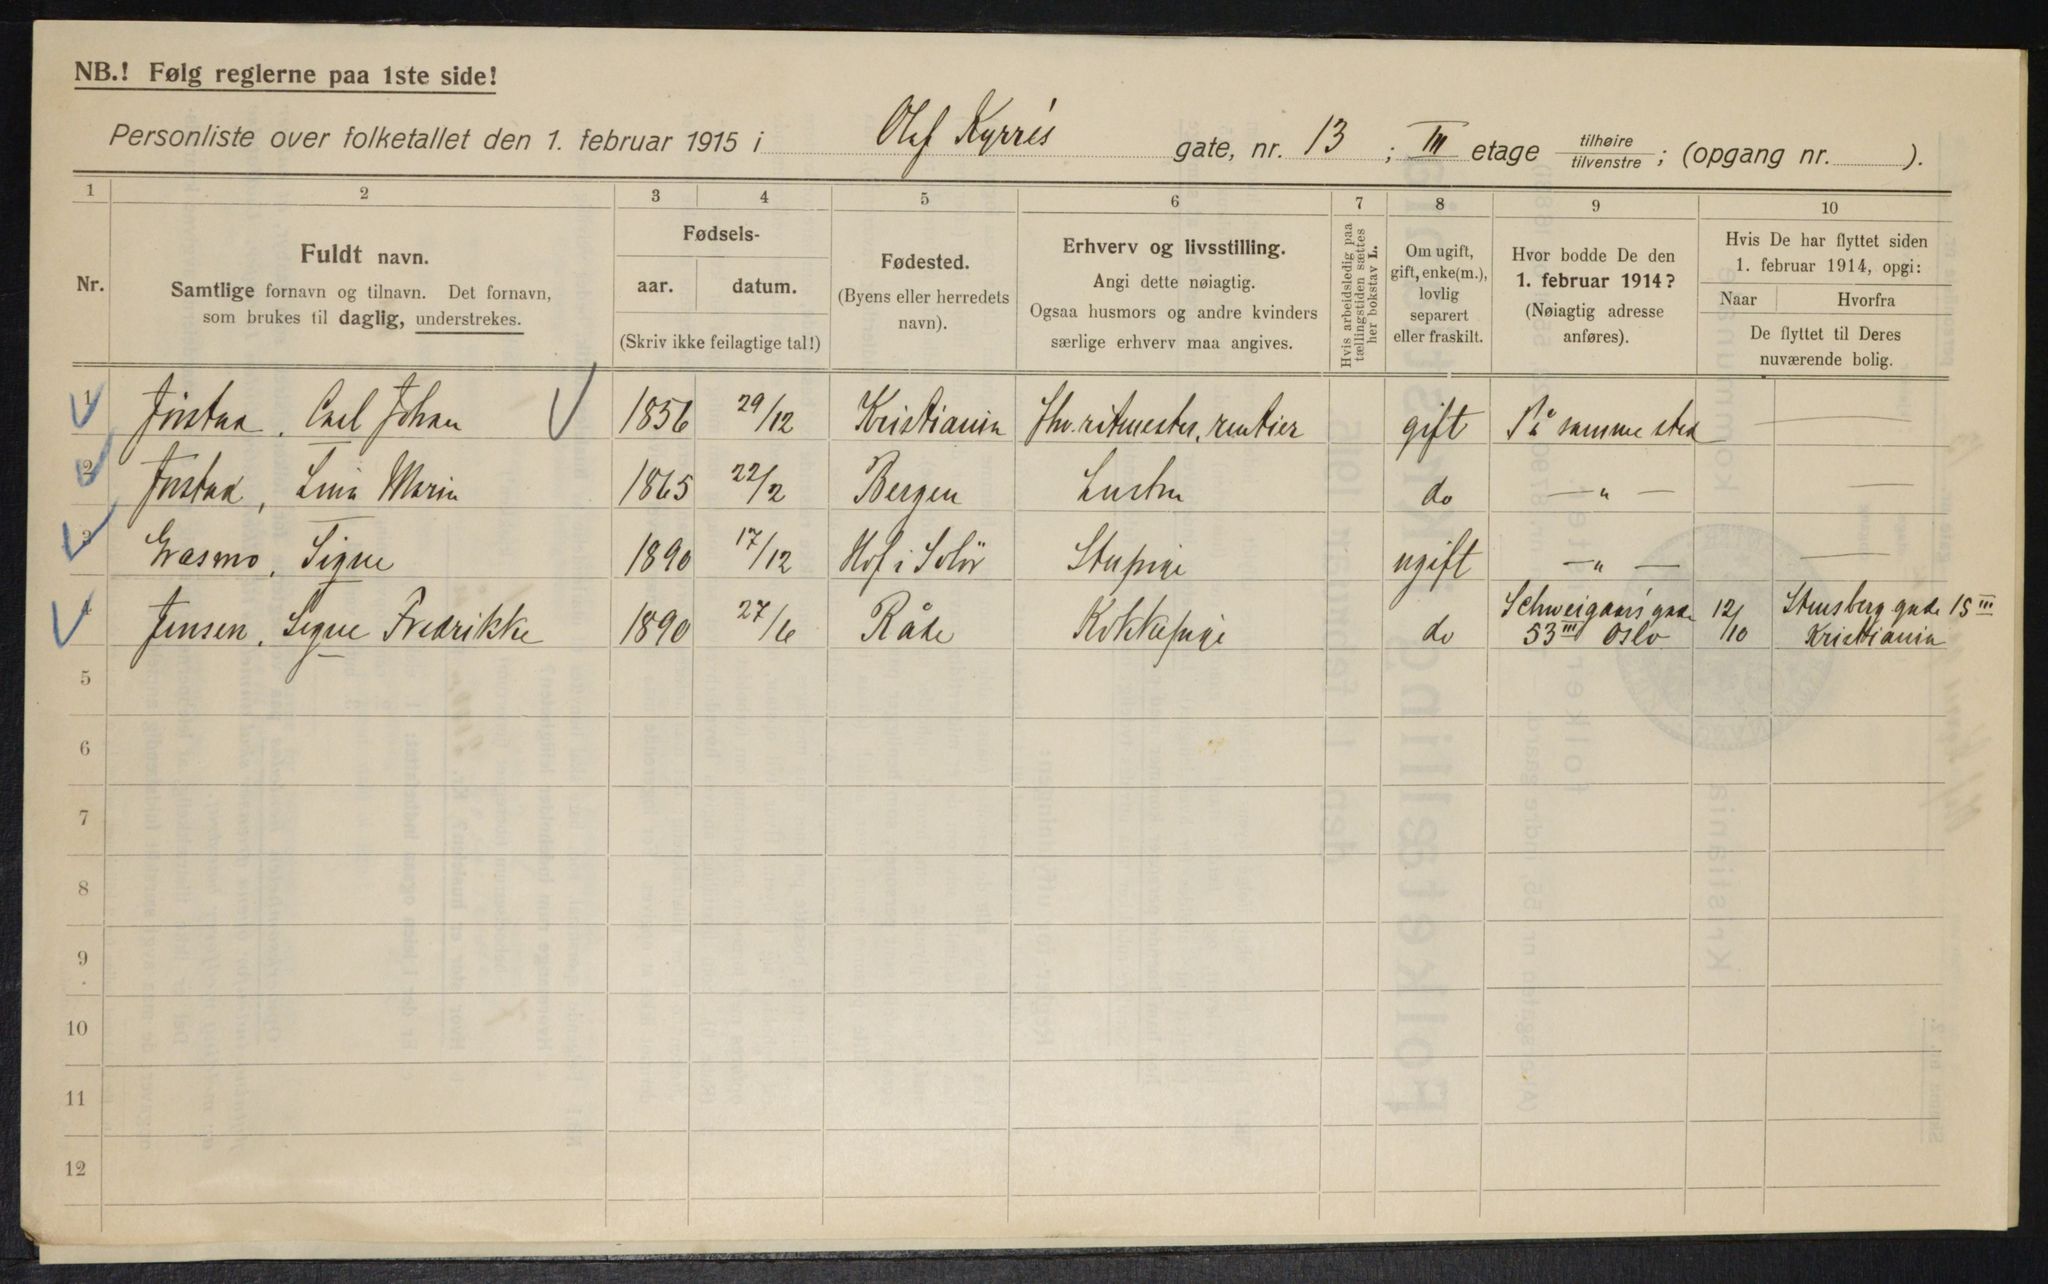 NB.! Følg reglerne paa 1ste side!
Personliste over folketallet den 1. februar 1915 i Olaf Kyrrés gate, nr. 13 ; III etage tilhøire / tilvenstre ; (opgang nr. ).
1 2 3 4 5 6 7 8 9 10
Nr.
Fuldt navn.
Samtlige fornavn og tilnavn. Det fornavn,
som brukes til daglig, understrekes.
Fødsels-
aar. datum.
(Skriv ikke feilagtige tal!)
Fødested.
(Byens eller herredets
navn).
Erhverv og livsstilling.
Angi dette nøiagtig.
Ogsaa husmors og andre kvinders
særlige erhverv maa angives.
Hvis arbeidsledig paa
tællingstiden sættes
her bokstav L.
Om ugift,
gift, enke(m.),
lovlig
separert
eller fraskilt.
Hvor bodde De den
1. februar 1914?
(Nøiagtig adresse
anføres).
Hvis De har flyttet siden
1. februar 1914, opgi:
Naar Hvorfra
De flyttet til Deres
nuværende bolig.
1 Carl Johan 1856 29/12 Kristiania ritmester, rentier gift På samme sted —
2 Lina Marie 1865 22/2 Bergen Hustru do — " — —
3 Græsmo, Signe 1890 17/12 Hof i Solör Stupige ugift — " — —
4 Jensen, Signe Fredrikke 1890 27/6 Råde Kokkepige do Schweigaardsgade 53 III Oslo 12/10 Stensberg gade 15 III Kristiania
5
6
7
8
9
10
11
12